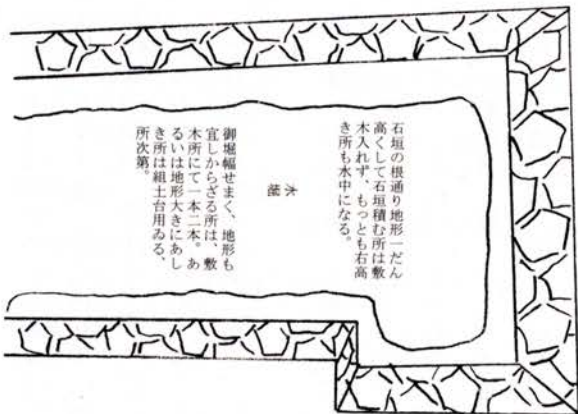 石垣の根通り地形一だん
高くして石垣積む所は敷
木入れず、もっとも右高
き所も水中になる。
水堀
御堀幅せまく、地形も
宜しからざる所は、敷
木所にて一本二本。あ
るいは地形大きにあし
き所は組土台用ゐる、
所次第。